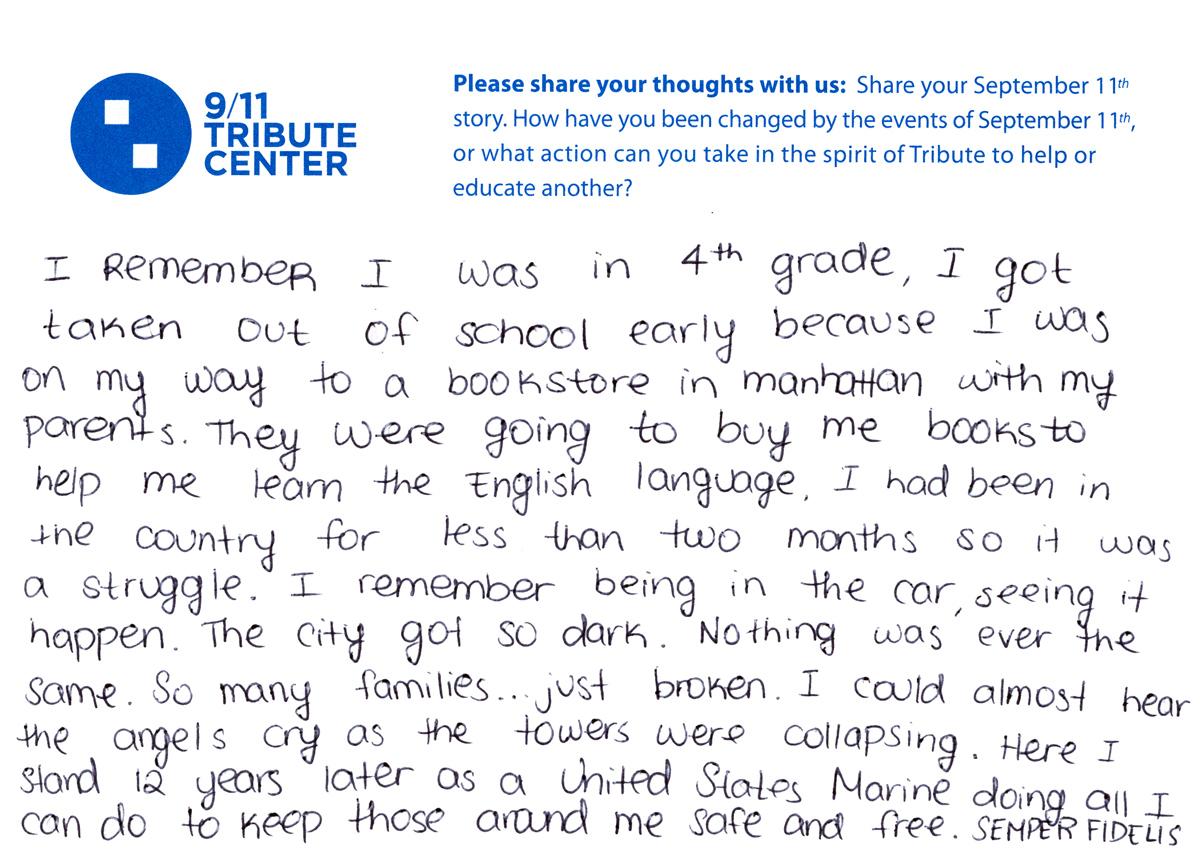 9/11
TRIBUTE
CENTER
Please share your thoughts with us: Share your September 11th
story. How have you been changed by the events of September 11th,
or what action can you take in the spirit of Tribute to help or
educate another?
I Remember I was in 4th grade, I got
taken out of school early because I was
on my way to a bookstore in manhattan with my
parents. They were going to buy me books to
help me learn the English language, I had been in
the country for less than two months so it was
a struggle. I remember being in the car, seeing it
happen. The city got so dark. Nothing was ever the
same. So many families... just broken. I could almost hear
the angels cry as the towers were collapsing. Here I
stand 12 years later as a United States Marine doing all I
can do to keep those around me safe and free. SEMPER FIDELIS